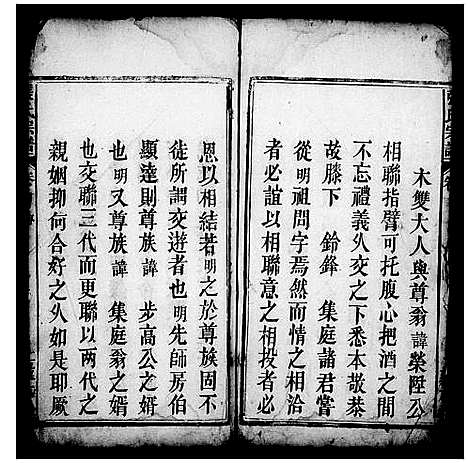 木雙大人與尊翁諱榮陞公
相聯指臂可托腹心把酒之間
不忘禮義久交之下悉本敬恭
故膝下 鈴鋒 集庭諸君嘗
從明祖問字焉然而情之相洽
者必誼以相聯意之相投者必
恩以相結若明之於尊族固不
徒所謂交遊者也明先師房伯
顯達則尊族諱 步高公之婿
也明又尊族諱 集庭翁之婿
也交聯三代而更聯以兩代之
親姻抑何合好之久如是耶厥